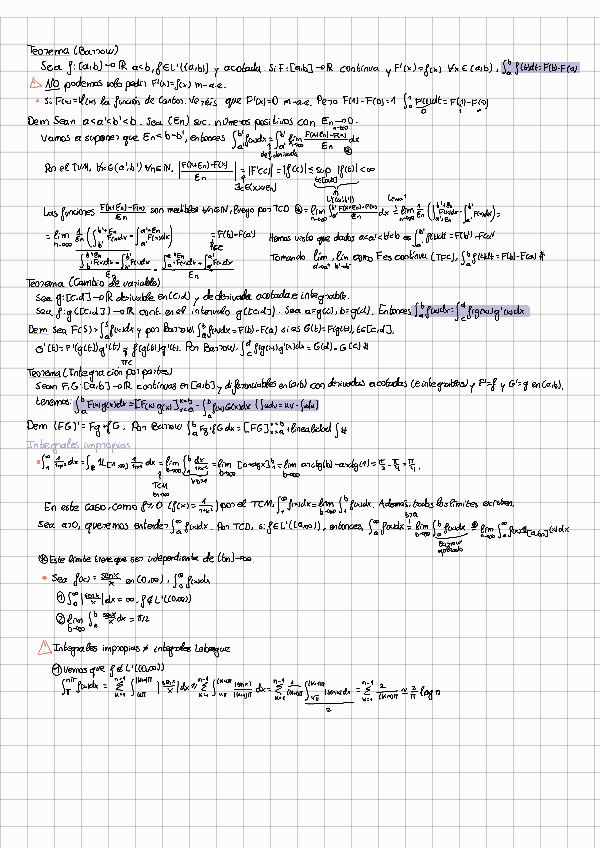 Teorema (Barrow)
Sea f: [a,b]→ℝ a<b, f∈L¹([a,b]) y acotada. Si F: [a,b]→ℝ continua y F'(x)=f(x) ∀x∈(a,b), ∫_a^b f(t)dt = F(b)-F(a)
⚠ NO podemos solo pedir F'(x)=f(x) m-a.e.
• Si F(x)= la función de Cantor. Veréis que F'(x)=0 m-a.e. Pero F(1)-F(0)=1 ∫_0^1 F'(t)dt = F(1)-F(0)
Dem Sean a<a'<b'<b. Sea (En) suc. números positivos con En→0.
Vamos a suponer que En<b-b', entonces ∫_{a'}^{b'} f(x)dx = ∫_{a'}^{b'} lim_{n→∞} (F(x+En)-F(x))/En dx
def. derivada
Por el TVM, ∀x∈(a',b') ∀n∈ℕ, |(F(x+En)-F(x))/En| = |F'(c)| = |f(c)| ≤ sup_{t∈[a,b]} |f(t)| < ∞
∃c∈(x,x+En)
Las funciones (F(x+En)-F(x))/En son medibles ∀n∈ℕ, luego por TCD ⊛ = lim_{n→∞} ∫_{a'}^{b'} (F(x+En)-F(x))/En dx = lim_{n→∞} 1/En (∫_{a'+En}^{b'+En} F(x)dx - ∫_{a'}^{b'} F(x)dx) =
= lim_{n→∞} 1/En (∫_{b'}^{b'+En} F(x)dx - ∫_{a'}^{a'+En} F(x)dx) = F(b')-F(a') Hemos visto que dados a<a'<b'<b es ∫_{a'}^{b'} f(t)dt = F(b')-F(a')
TFC Tomando lim_{a'→a⁺} lim_{b'→b⁻} como F es continua (TFC), ∫_a^b f(t)dt = F(b)-F(a) #
Teorema (Cambio de variable)
Sea g: [c,d]→ℝ derivable en (c,d) y de derivada acotada e integrable.
Sea f: g([c,d])→ℝ cont. en el intervalo g([c,d]). Sea a=g(c), b=g(d). Entonces ∫_a^b f(x)dx = ∫_c^d f(g(x))g'(x)dx
Dem Sea F(s) = ∫_a^s f(x)dx y por Barrow, ∫_a^b f(x)dx = F(b)-F(a) si es G(t)=F(g(t)), t∈[c,d],
G'(t) = F'(g(t))g'(t) = f(g(t))g'(t). Por Barrow, ∫_c^d f(g(x))g'(x)dx = G(d)-G(c) #
TFC
Teorema (Integración por partes)
Sean F,G: [a,b]→ℝ continuas en [a,b] y diferenciables en (a,b) con derivadas acotadas (e integrables) y F'=f y G'=g en (a,b),
tenemos ∫_a^b F(x)g(x)dx = [F(x)g(x)]_{x=a}^{x=b} - ∫_a^b f(x)G(x)dx (∫udv = uv - ∫vdu)
Dem (FG)' = Fg+fG. Por Barrow ∫_a^b Fg+fG dx = [FG]_{x=a}^{x=b} + linealidad ∫ #
Integrales impropias
• ∫_1^∞ 1/(1+x²) dx = ∫_ℝ 1_{[1,∞)} 1/(1+x²) dx = lim_{b→∞} ∫_1^b dx/(1+x²) = lim_{b→∞} [arctgx]_1^b = lim_{b→∞} arctg(b)-arctg(1) = π/2 - π/4 = π/4.
TCM
En este caso, como f≥0 (f(x) = 1/(1+x²)) por el TCM, ∫_1^∞ f(x)dx = lim_{b→∞} ∫_1^b f(x)dx. Además, todos los límites existen.
Sea a>0, queremos entender ∫_a^∞ f(x)dx. Por TCD, si f∈L¹([a,∞)), entonces, ∫_a^∞ f(x)dx = lim_{b→∞} ∫_a^b f(x)dx ⊛= lim_{n→∞} ∫ f(x)1_{[a,bn]}(x)dx
Barrow
⊛ Este límite tiene que ser independiente de (bn)→∞.
• Sea f(x) = senx/x en (0,∞), ∫_0^∞ f(x)dx
① ∫_0^∞ |senx/x| dx = ∞, f∉L¹((0,∞))
② lim_{b→∞} ∫_0^b senx/x dx = π/2
⚠ Integrales impropias ≠ integrales Lebesgue
① Vemos que f∉L¹((0,∞))
∫_π^{nπ} f(x)dx = Σ_{k=1}^{n-1} ∫_{kπ}^{(k+1)π} |senx/x| dx ≥ Σ_{k=1}^{n-1} ∫_{kπ}^{(k+1)π} |senx|/(k+1)π dx = Σ_{k=1}^{n-1} 1/(k+1)π ∫_{kπ}^{(k+1)π} |senx|dx = Σ_{k=1}^{n-1} 2/(k+1)π ≈ 2/π log n
2